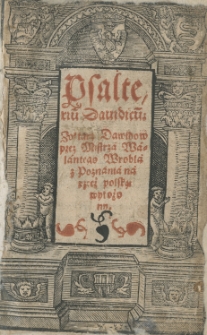 Psalte,
riū Dauidicū,
Zoltarz Dawidow
przez Mistrza Wa
lantego Wrobla
z Poznania na
rzecz polską
wyłożo
ny.